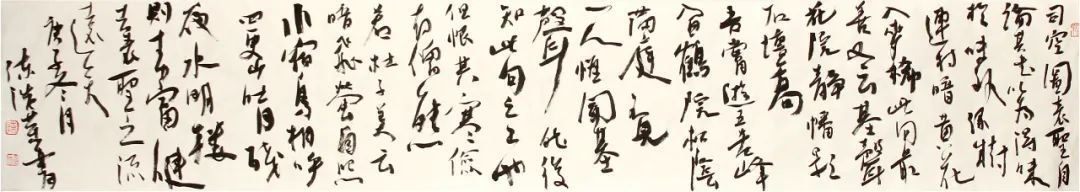 司空圖表聖自
論其詩以為得味
於味外綠樹
連村暗黃花
入麥稀此句最
善又云棊聲
花院靜幡影
石壇高
吾嘗遊五老峰
入白鶴院松陰
滿庭不見
一人惟聞棊
聲然後
知此句之工也
但恨其寒儉
有僧態
若杜子美云
暗飛螢自照
水宿鳥相呼
四更山吐月殘
夜水明樓
則才力富健
去表聖之流
遠矣
庚子冬月
書